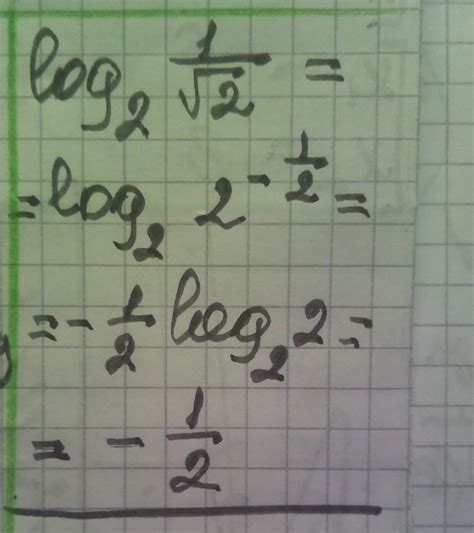 log₂ 1/√2 =
= log₂ 2^(-1/2) =
= - 1/2 log₂ 2 =
= - 1/2